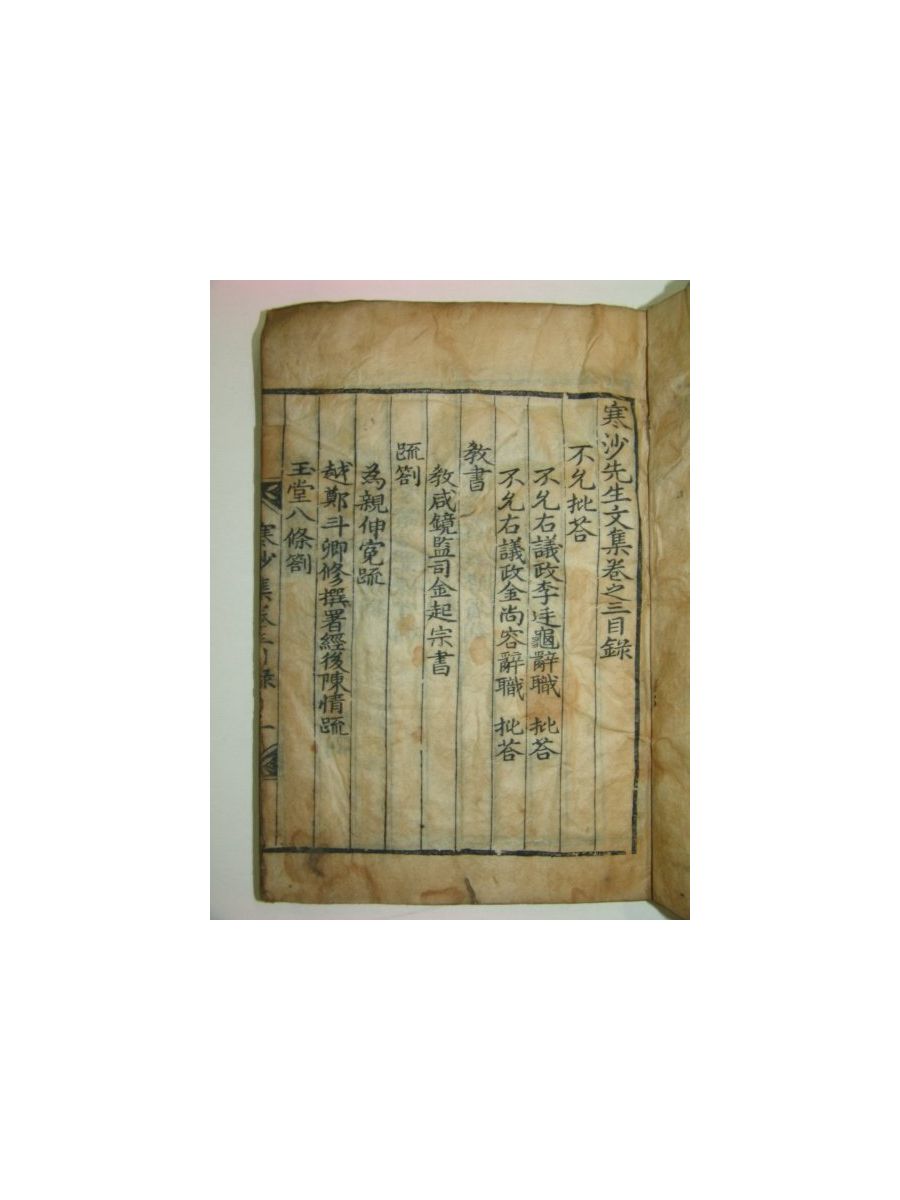 寒沙先生文集卷之三目錄
不允批荅
不允右議政李廷龜辭職 批荅
不允右議政金尙容辭職 批荅
教書
教咸鏡監司金起宗書
疏劄
為親伸寃疏
越鄭斗卿修撰署經後陳情疏
玉堂八條劄
寒沙集卷三目錄 一